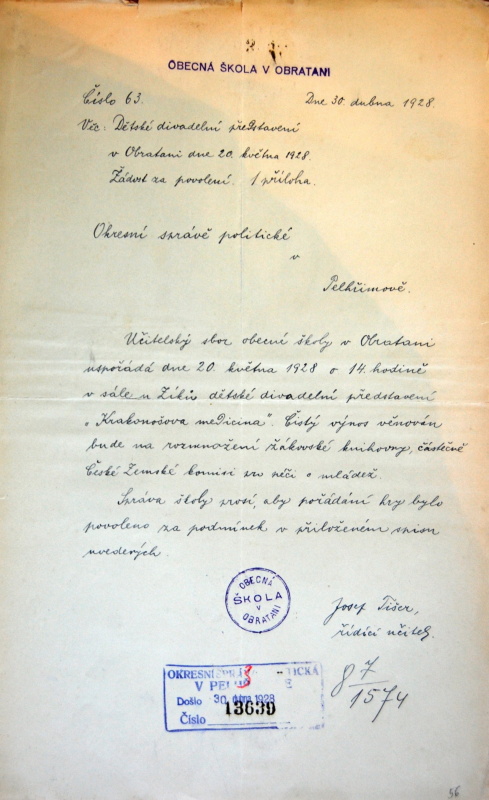 OBECNÁ ŠKOLA V OBRATANI
Číslo 63.
Dne 30. dubna 1928.
Věc: Dětské divadelní představení
v Obratani dne 20. května 1928.
Žádost za povolení. 1 příloha.
Okresní správě politické
v
Pelhřimově.
Učitelský sbor obecní školy v Obratani
uspořádá dne 20. května 1928 o 14. hodině
v sále u Zíků dětské divadelní představení
„Krakonošova medicina". Čistý výnos věnován
bude na rozmnožení žákovské knihovny, částečně
České Zemské komisi pro péči o mládež.
Správa školy prosí, aby pořádání hry bylo
povoleno za podmínek v přiloženém spisu
uvedených.
OBECNÁ
ŠKOLA
V
OBRATANI
Josef Tišer,
řídící učitel.
OKRESNÍ POLITICKÁ
V
Došlo 30. dubna 1928
13639
Číslo
8 7
1574
56